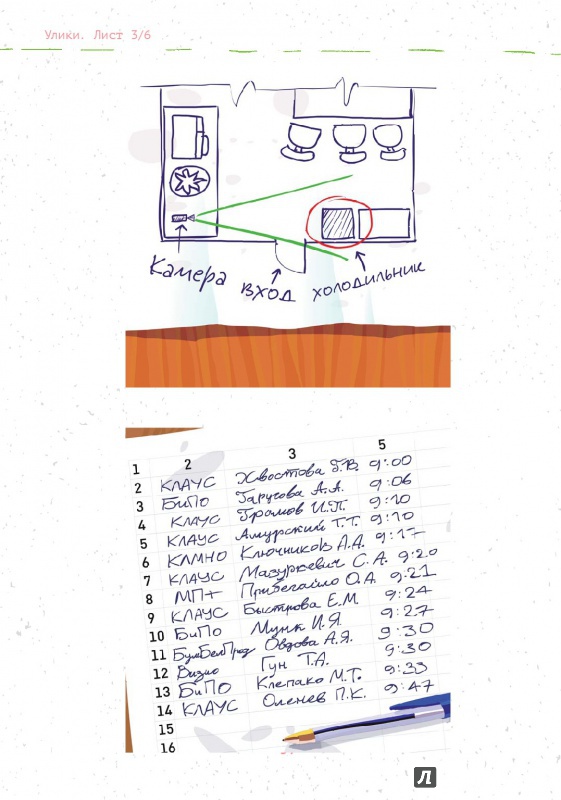 Улики. Лист 3/6
Камера
вход
холодильник
1 2 3 5
2 КЛАУС Хвостова Г.В. 9:00
3 БиПо Гаругова А.А. 9:06
4 КЛАУС Громов И.П. 9:10
5 КЛАУС Амурский Т.Т. 9:10
6 КЛМНО Ключников А.А. 9:17
7 КЛАУС Мазуркевич С.А. 9:20
8 МП+ Прибегайло О.А. 9:21
9 КЛАУС Быстрова Е.М. 9:24
10 БиПо Мунк И.Я. 9:27
11 БумБелПрод Овдова А.Я. 9:30
12 Визио Гун Т.А. 9:30
13 БиПО Клепако М.Т. 9:33
14 КЛАУС Оленев П.К. 9:47
15
16
Л